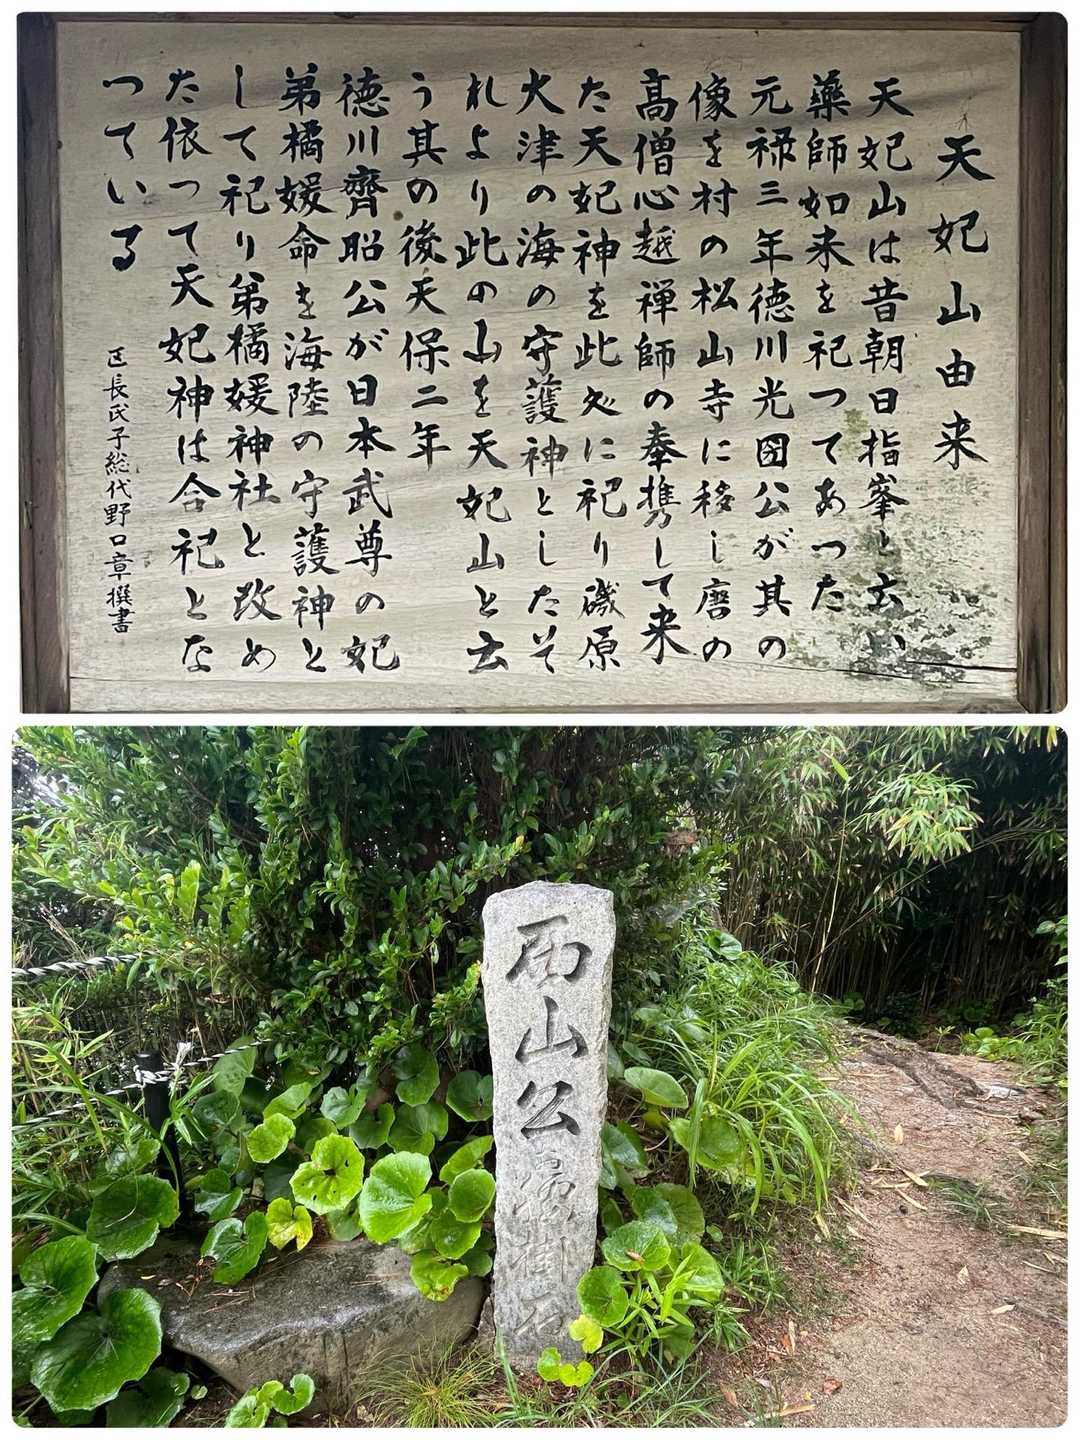 天妃山由来
天妃山は昔朝日指峯と云い
藥師如来を祀つてあつた
元禄三年徳川光圀公が其の
像を村の松山寺に移し唐の
高僧心越禅師の奉携して来
た天妃神を此処に祀り磯原
大津の海の守護神としたそ
れより此の山を天妃山と云
う其の後天保二年
徳川齊昭公が日本武尊の妃
弟橘媛命を海陸の守護神と
して祀り弟橘媛神社と改め
た依って天妃神は合祀とな
つている
区長氏子総代野口章撰書
西山公腰掛石